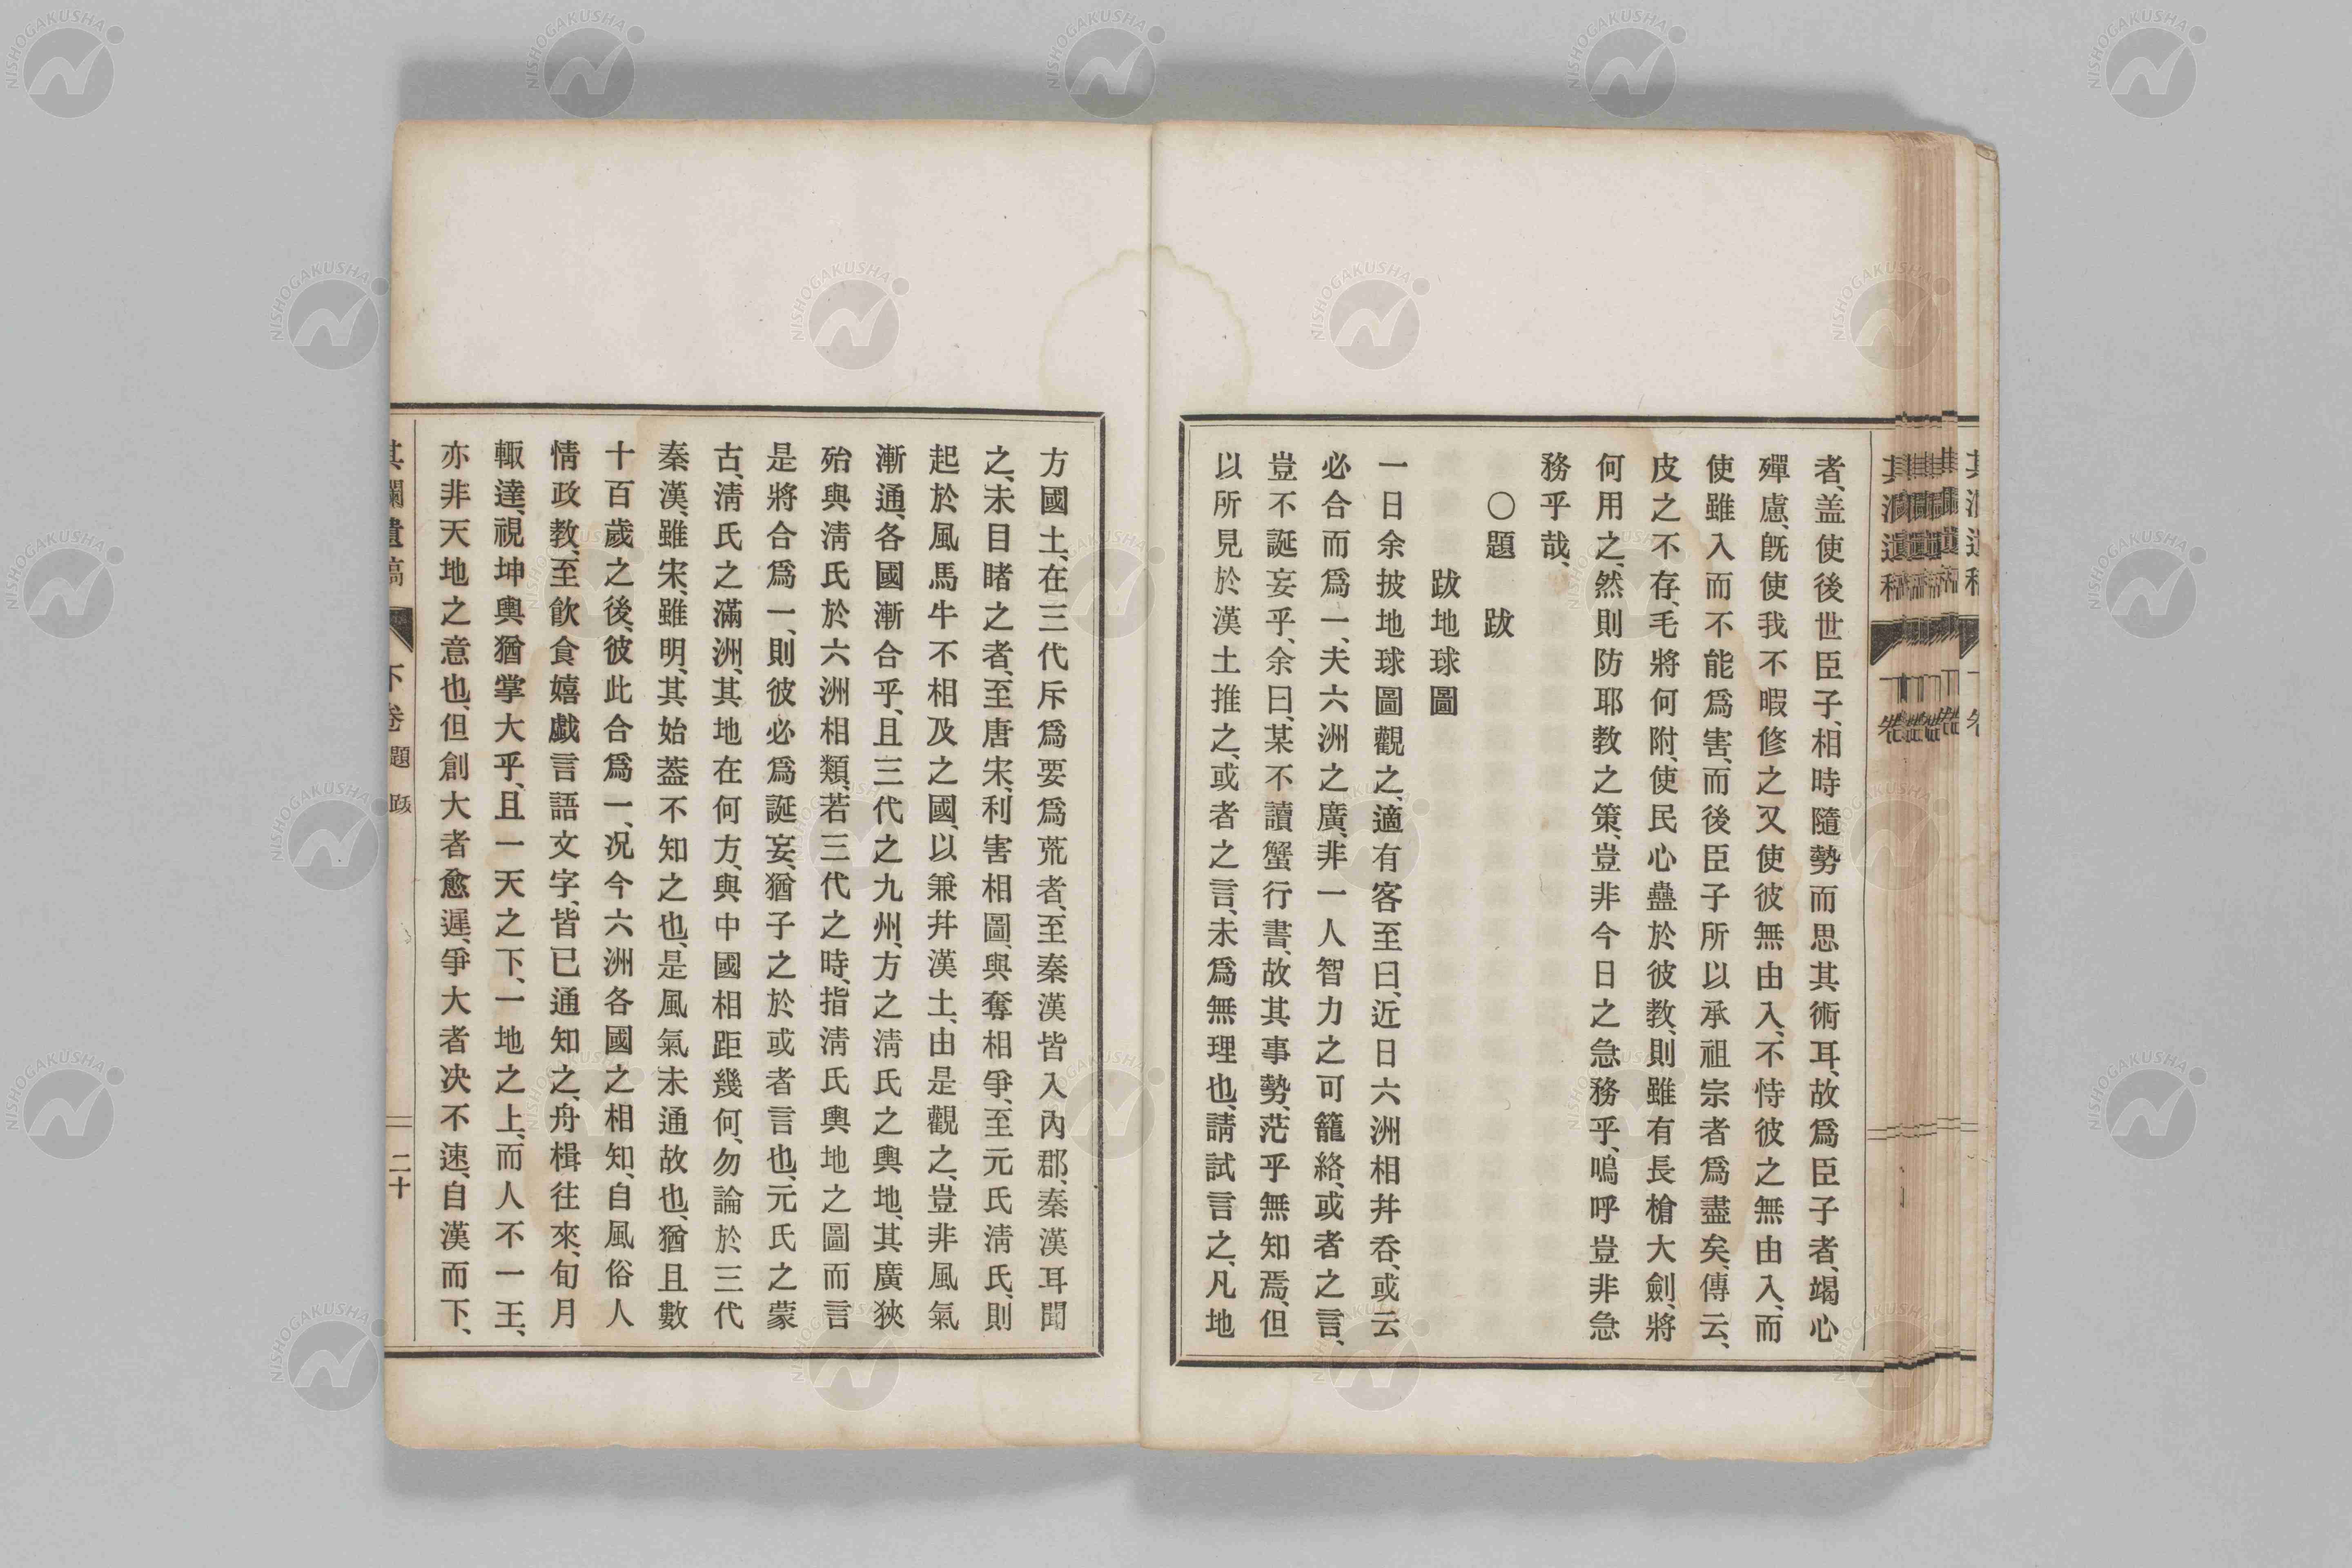 者、盖使後世臣子、相時隨勢而思其術耳、故爲臣子者、竭心
殫慮、既使我不暇修之又使彼無由入、不恃彼之無由入、而
使雖入而不能爲害、而後臣子所以承祖宗者爲盡矣、傳云、
皮之不存、毛將何附、使民心蠱於彼教、則雖有長槍大劍、將
何用之、然則防耶教之策、豈非今日之急務乎、嗚呼豈非急
務乎哉、
〇題 跋
跋地球圖
一日余披地球圖觀之、適有客至曰、近日六洲相幷呑、或云
必合而爲一、夫六洲之廣、非一人智力之可籠絡、或者之言、
豈不誕妄乎、余曰、某不讀蟹行書、故其事勢、茫乎無知焉、但
以所見於漢土推之、或者之言、未爲無理也、請試言之、凡地
方國土、在三代斥爲要爲荒者、至秦漢皆入內郡、秦漢耳聞
之、未目睹之者、至唐宋、利害相圖、與奪相爭、至元氏淸氏、則
起於風馬牛不相及之國、以兼幷漢土、由是觀之、豈非風氣
漸通、各國漸合乎、且三代之九州、方之淸氏之輿地、其廣狹
殆與淸氏於六洲相類、若三代之時、指淸氏輿地之圖而言
是將合爲一、則彼必爲誕妄、猶子之於或者言也、元氏之蒙
古、淸氏之滿洲、其地在何方、與中國相距幾何、勿論於三代
秦漢、雖宋、雖明、其始葢不知之也、是風氣未通故也、猶且數
十百歲之後、彼此合爲一、况今六洲各國之相知、自風俗人
情政教、至飮食嬉戲言語文字、皆已通知之、舟楫往來、旬月
輙達、視坤輿猶掌大乎、且一天之下、一地之上、而人不一王、
亦非天地之意也、但創大者愈遲、爭大者决不速、自漢而下、
其瀾遺稿 下卷 題跋 二十
NISHOGAKUSHA